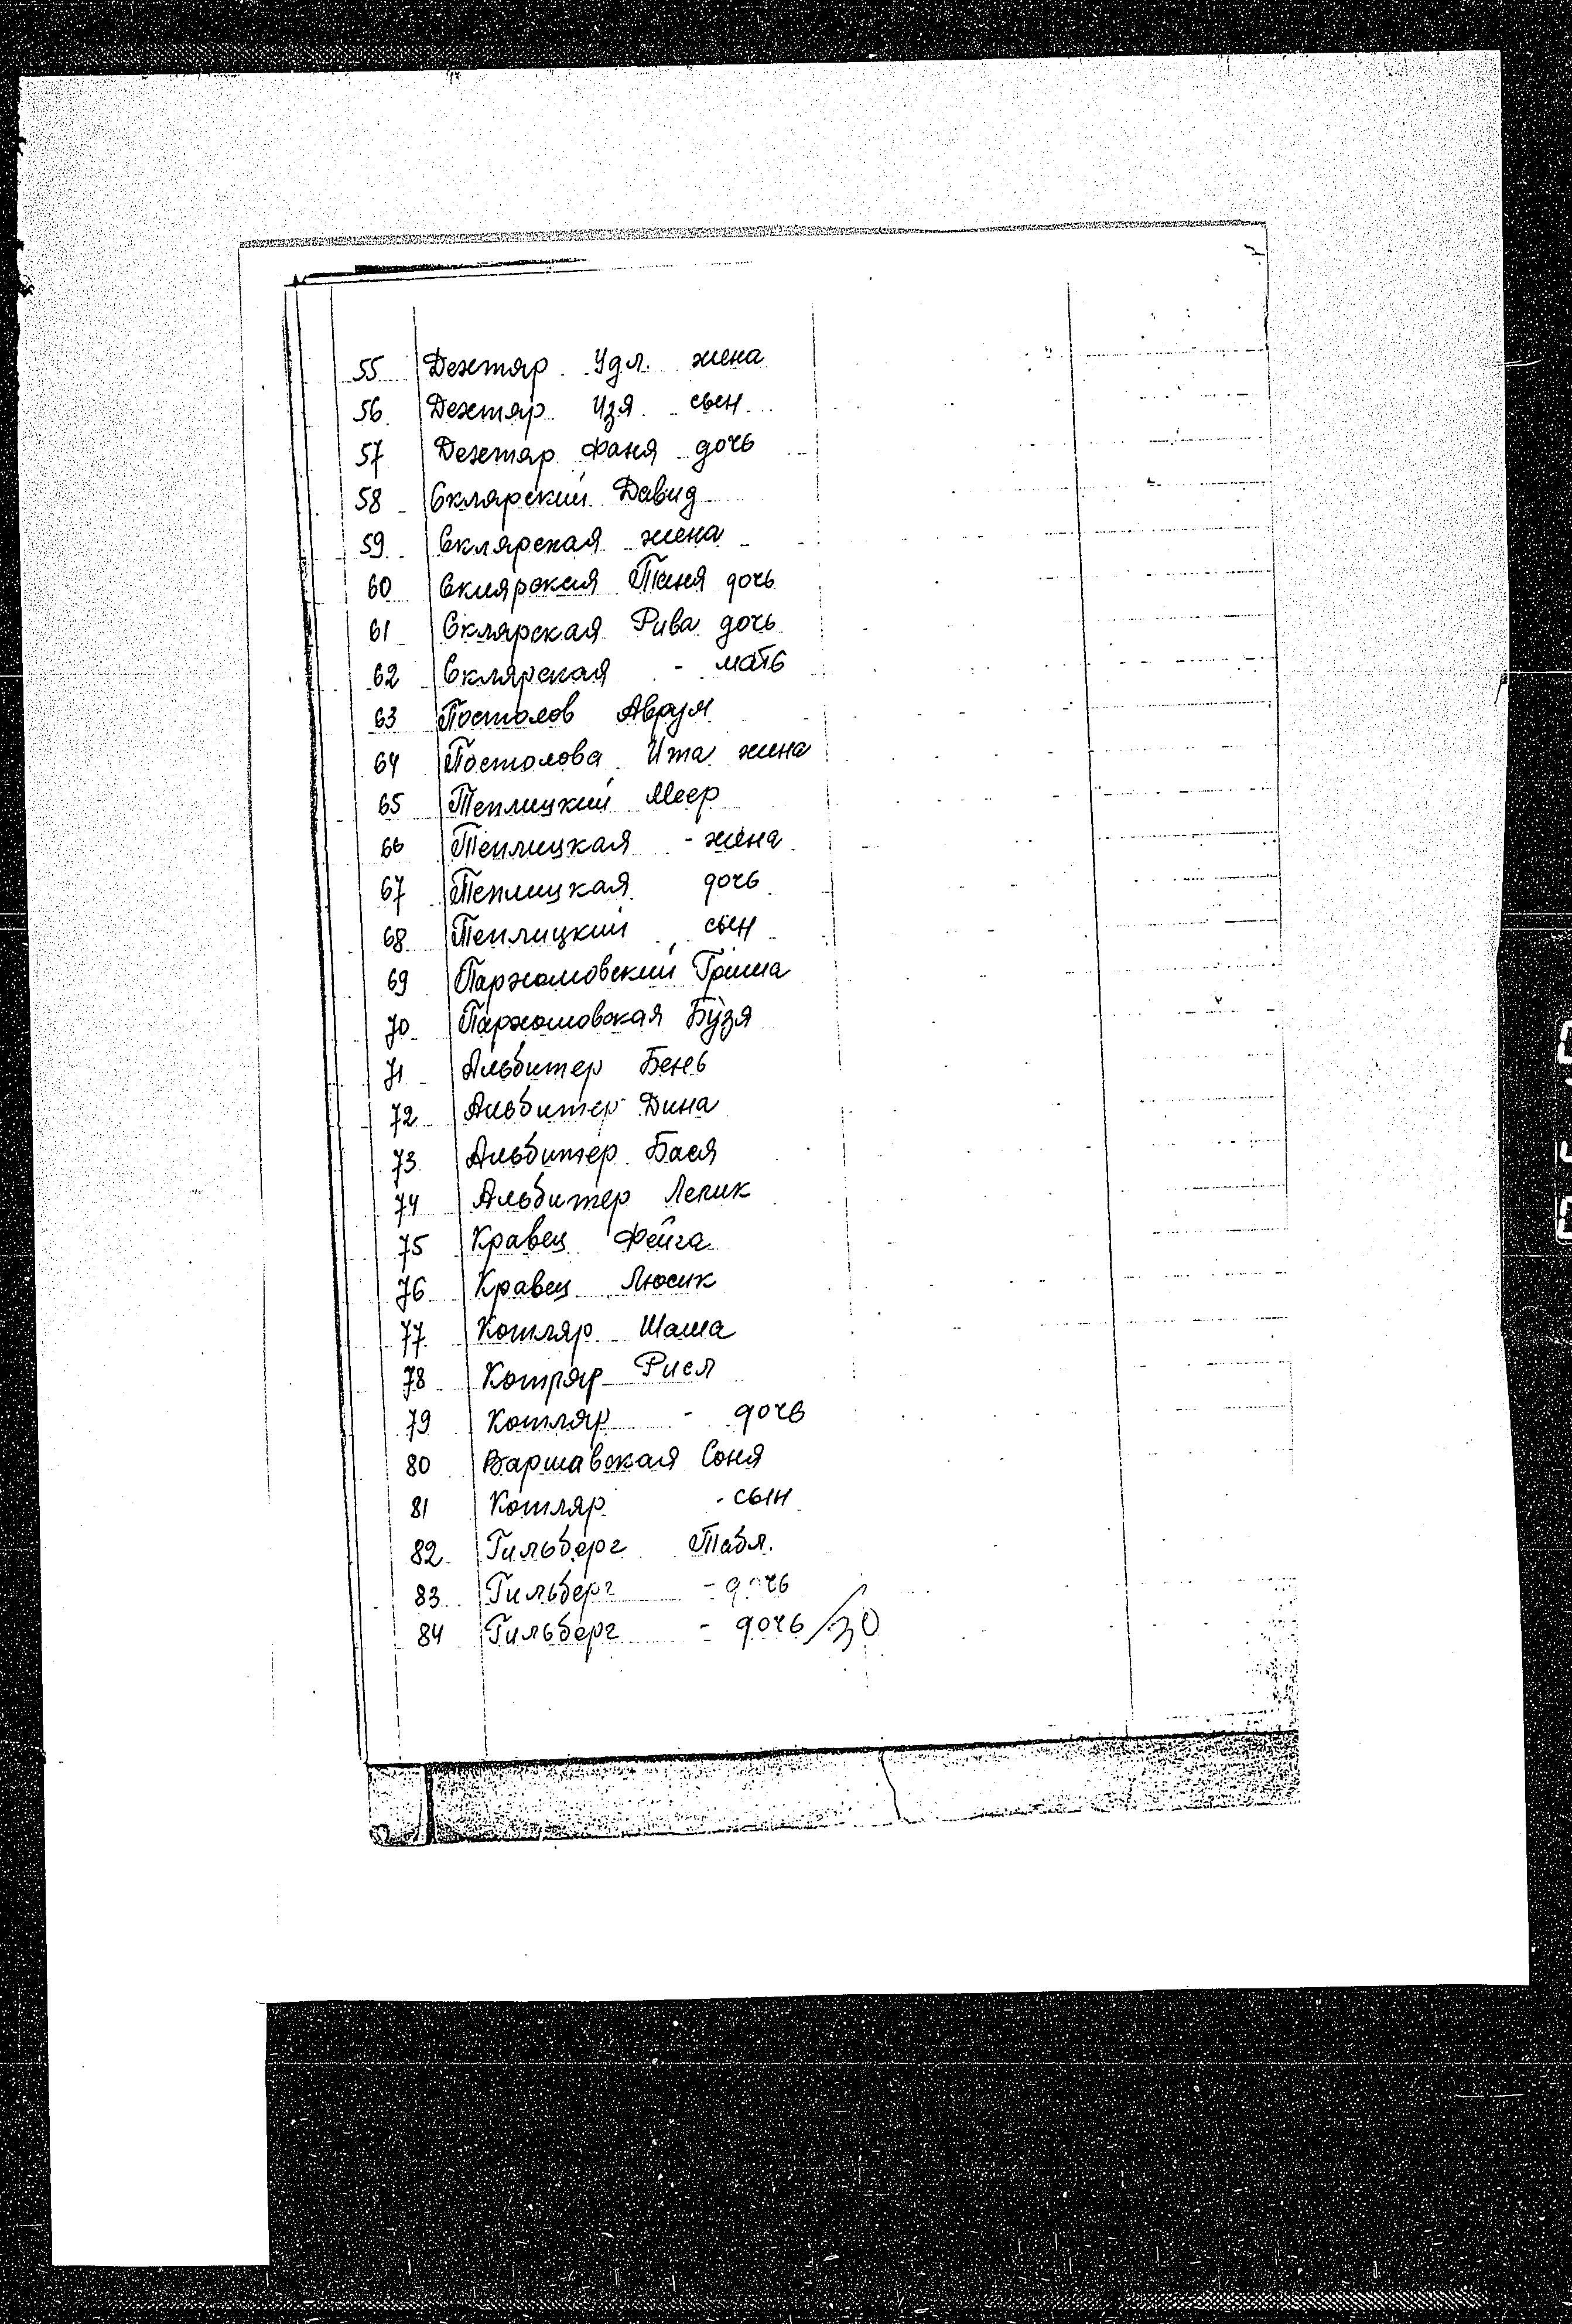 55 Дехтяр Удл. жена
56 Дехтяр Изя сын
57 Дехтяр Фаня дочь
58 Склярский Давид
59 Склярская жена
60 Склярская Таня дочь
61 Склярская Рива дочь
62 Склярская - мать
63 Постолов Аврум
64 Постолова Ита жена
65 Теплицкий Меер
66 Теплицкая - жена
67 Теплицкая дочь
68 Теплицкий сын
69 Пархомовский Гриша
70 Пархомовская Бузя
71 Альбитер Бень
72 Альбитер Дина
73 Альбитер Бася
74 Альбитер Лепик
75 Кравец Фейга
76 Кравец Люсик
77 Котляр Шаша
78 Котляр Рися
79 Котляр - дочь
80 Варшавская Соня
81 Котляр - сын
82 Гильберг Табл.
83 Гильберг - дочь
84 Гильберг - дочь /30